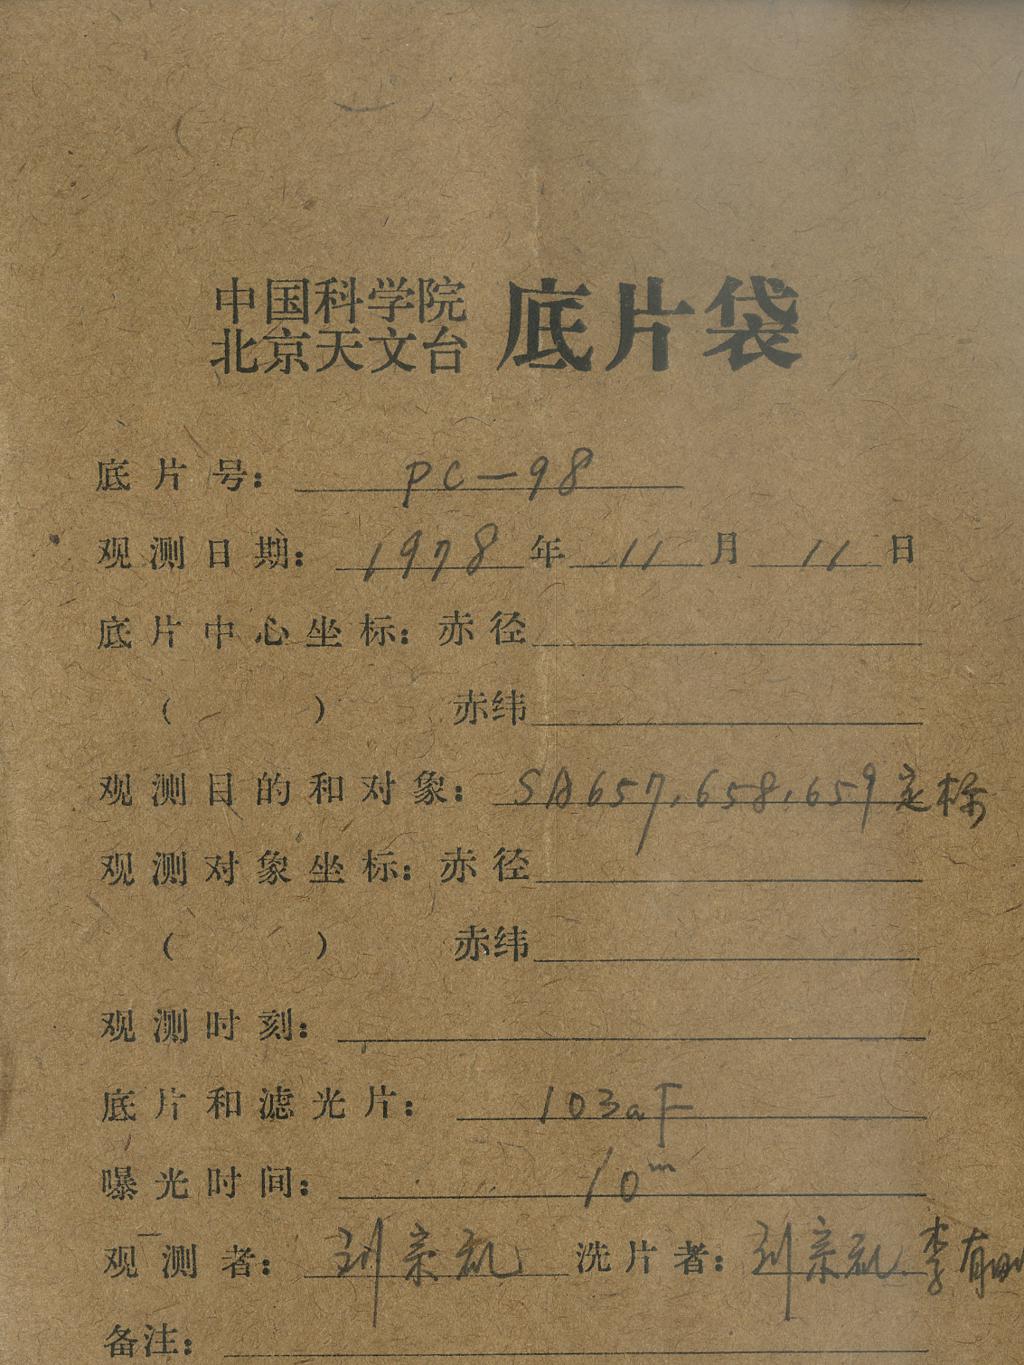 中国科学院
北京天文台 底片袋
底片号： PC-98
观测日期： 1978 年 11 月 11 日
底片中心坐标：赤径
（ ） 赤纬
观测目的和对象： SA657,658,659 定标
观测对象坐标：赤径
（ ） 赤纬
观测时刻：
底片和滤光片： 103aF
曝光时间： 10m
观测者： 刘宗礼 洗片者： 刘宗礼 李有
备注：